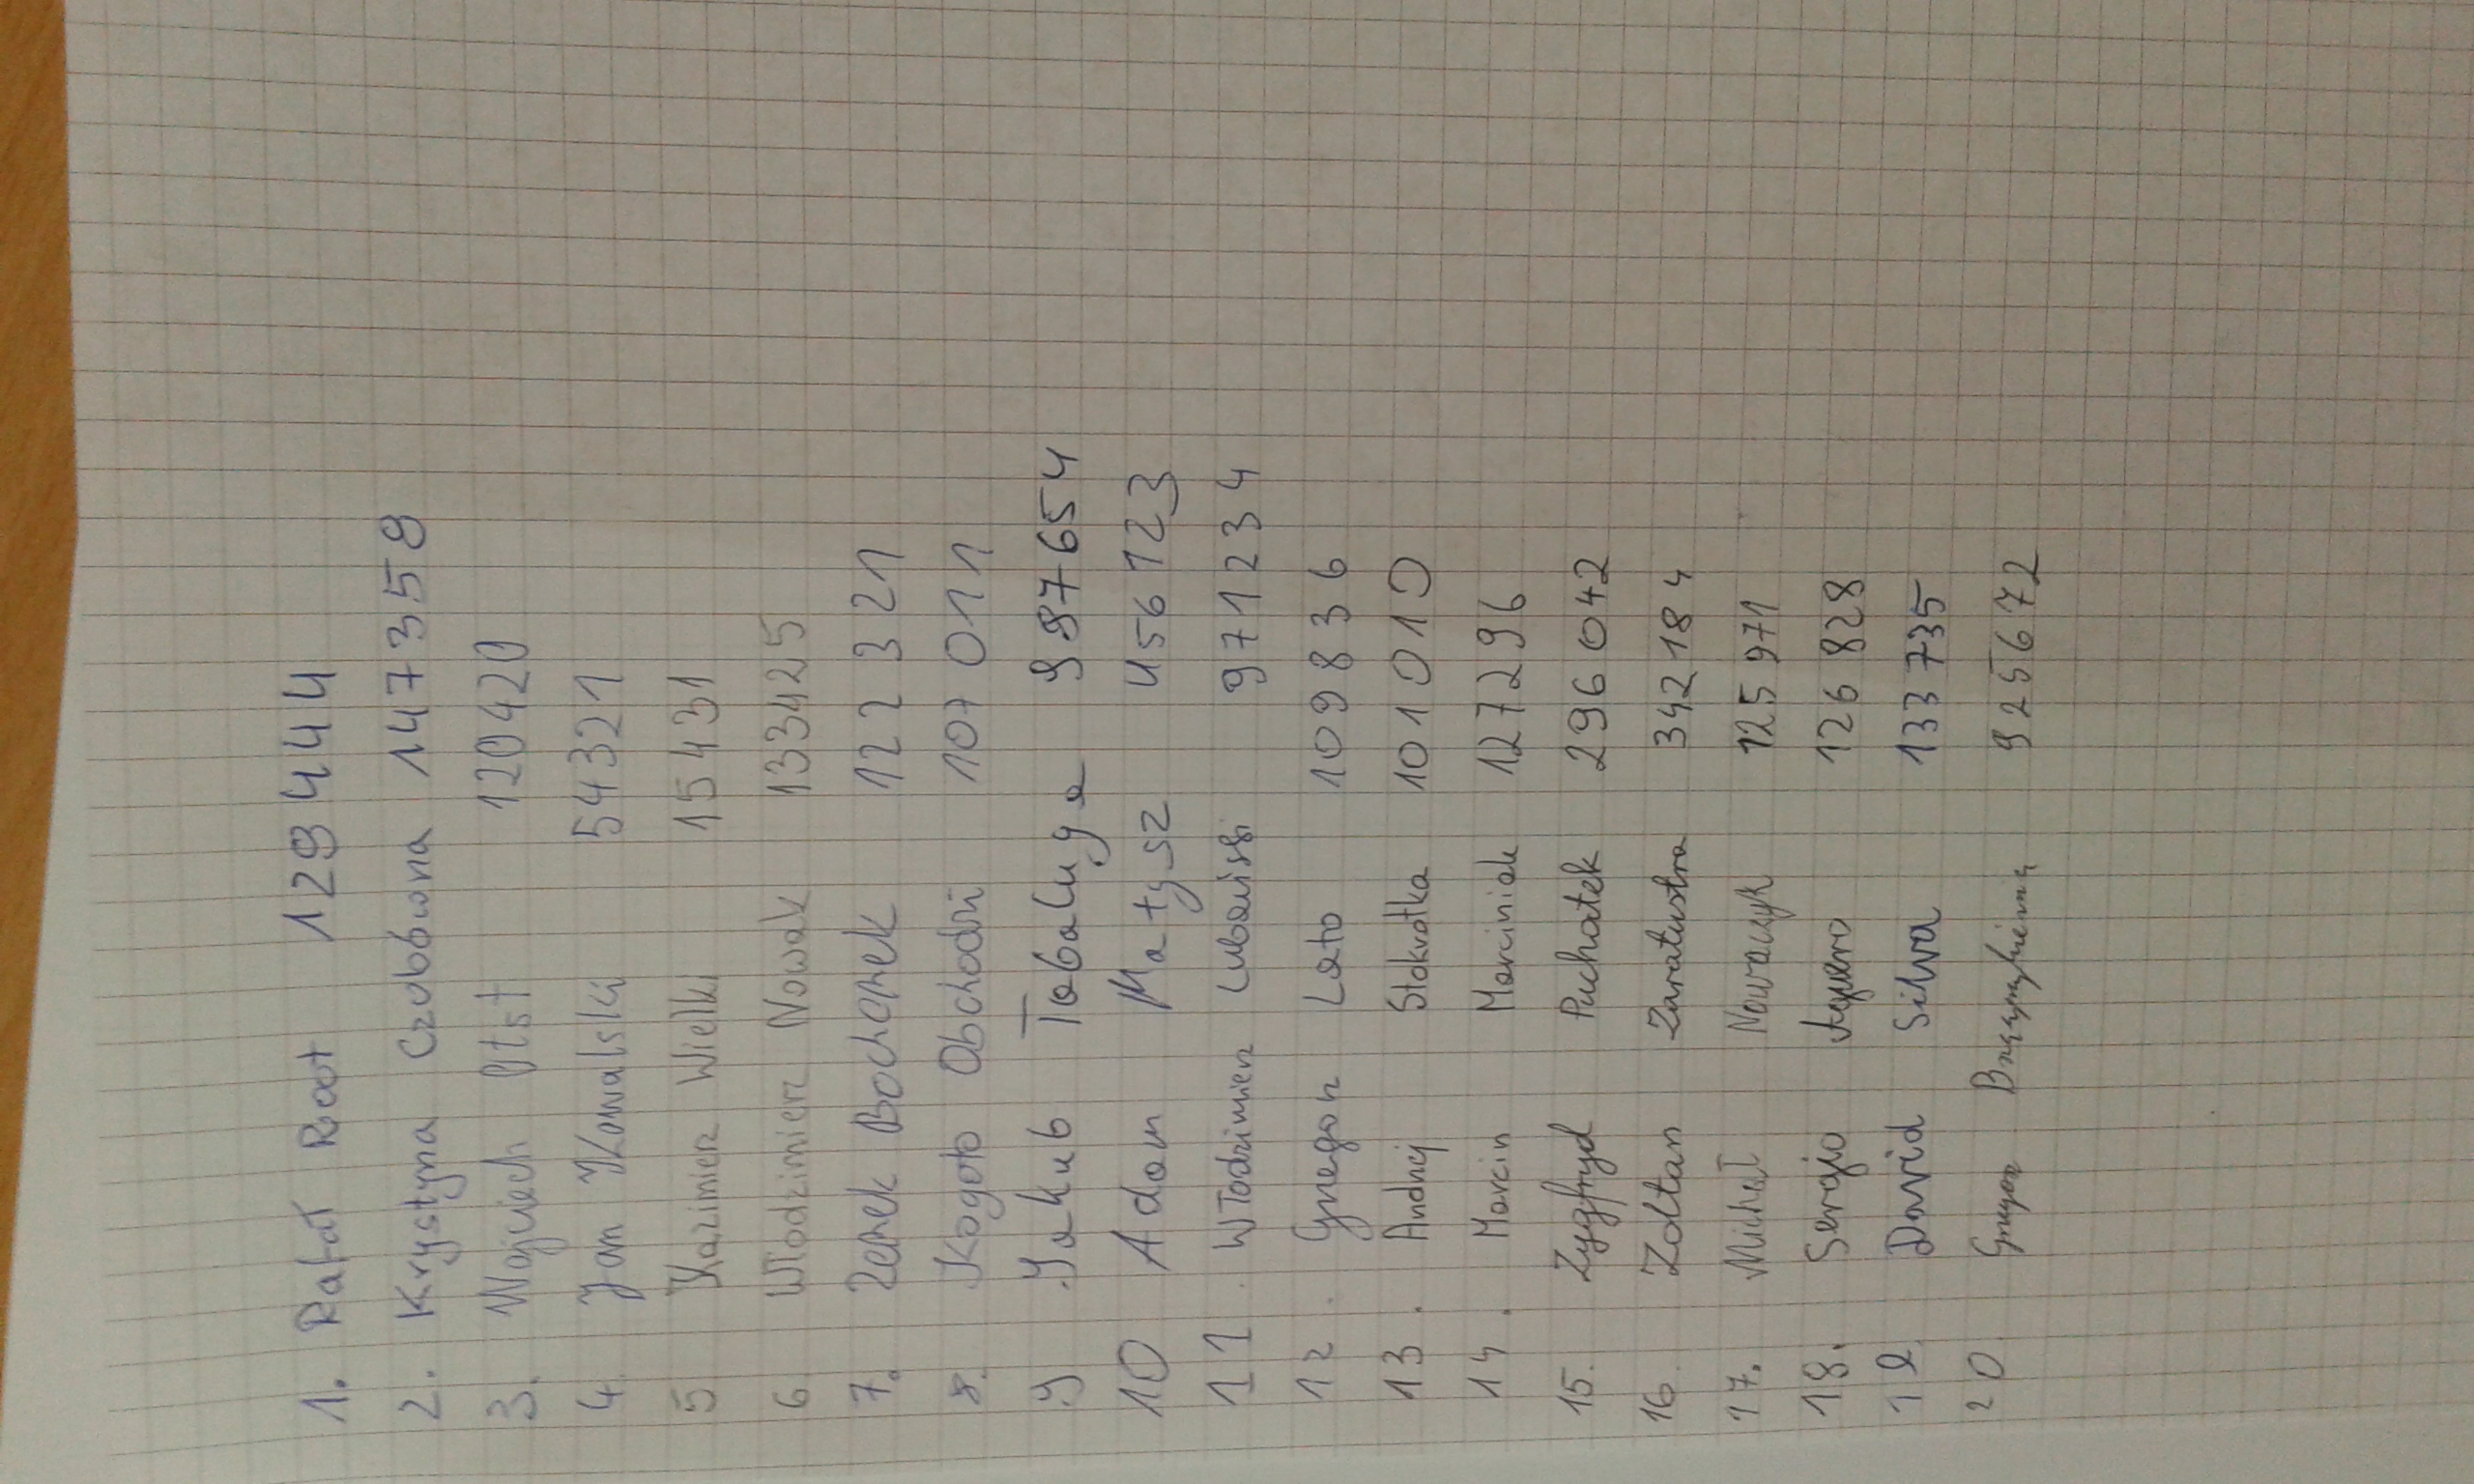 1. Rafał Root 129444
2. Krystyna Czubówna 147359
3. Wojciech Otst 120420
4. Jan Kowalski 54321
5 Kazimierz Wielki 15431
6 Włodzimierz Nowak 133425
7. Zenek Bochenek 122321
8. Kogoto Obchodzi 107011
9 Jakub Tabaluga 987654
10 Adam Małysz 456123
11. Włodzimierz Lubański 971234
12. Grzegorz Lato 109836
13. Andrzej Stokrotka 101010
14. Marcin Marciniak 127296
15. Zygfryd Puchatek 296042
16. Zoltan Zaratustra 342184
17. Michał Nowaczyk 125971
18. Sergio Aguero 126828
19. David Silva 133735
20 Grzegorz 925672